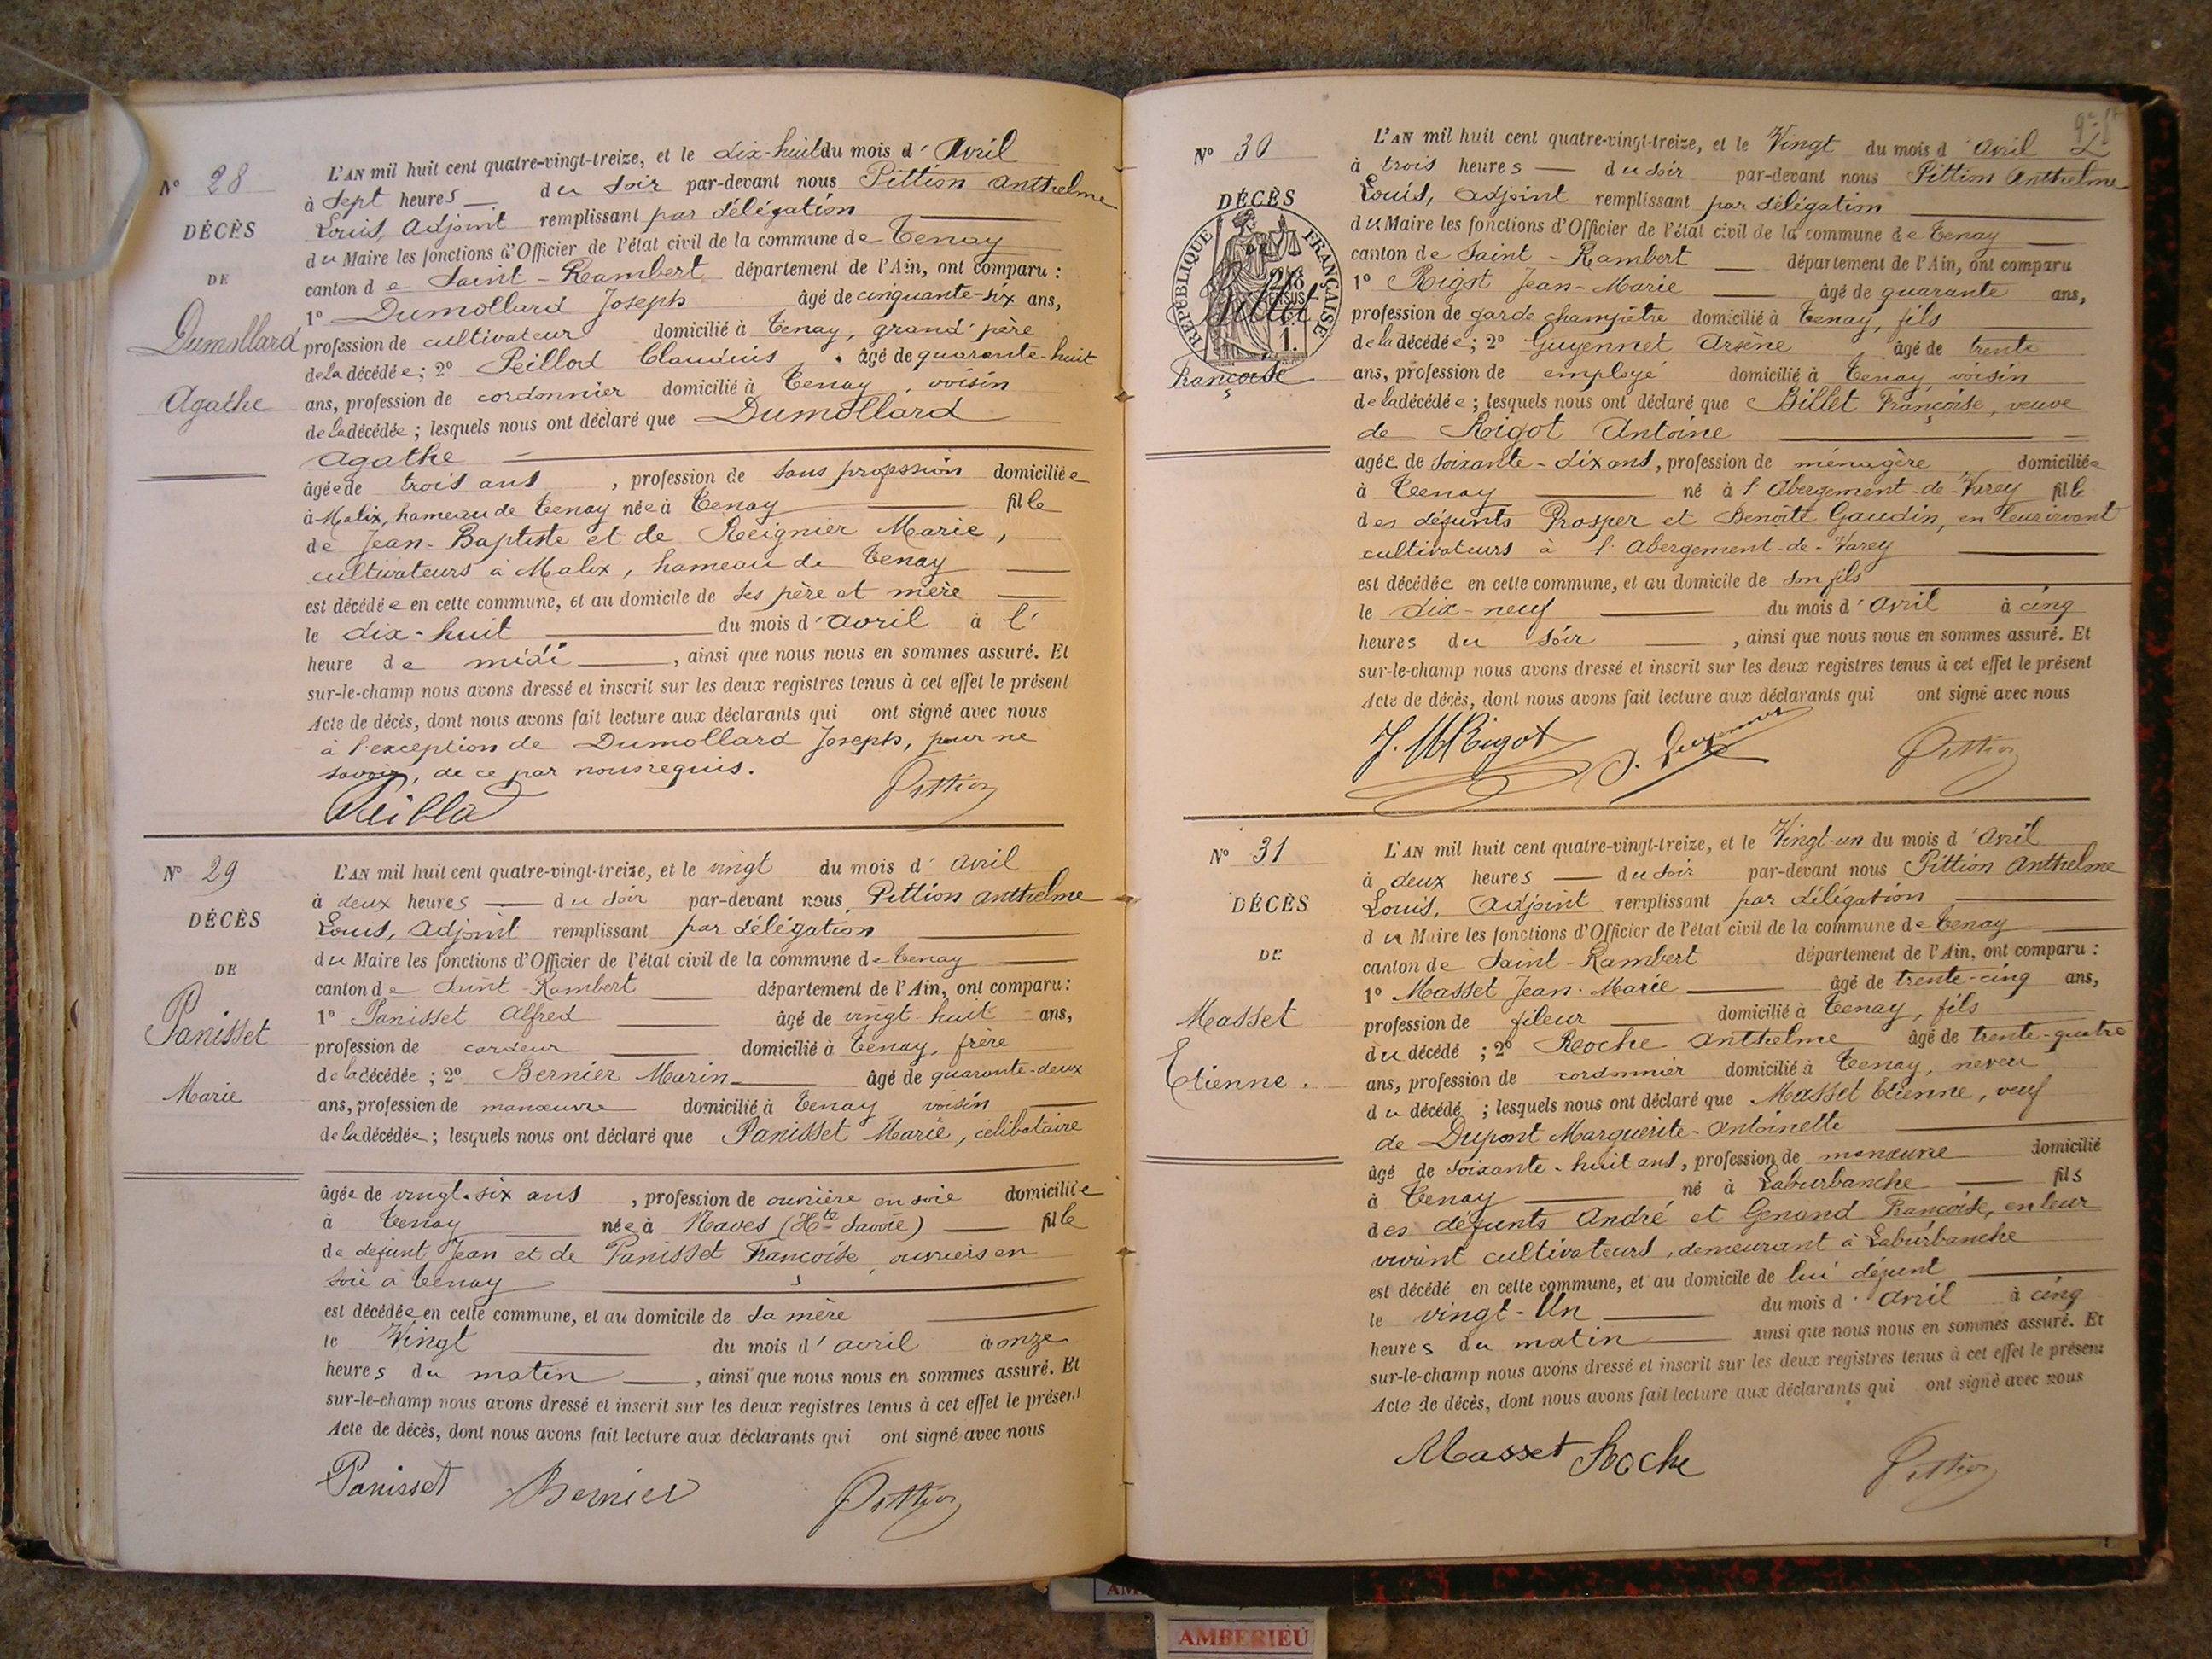 N° 28
DÉCÈS
DE
Dumollard
Agathe
L'AN mil huit cent quatre-vingt-treize, et le dix-huit du mois d'Avril
à sept heures — du soir par-devant nous Pittion Anthelme
Louis, Adjoint remplissant par délégation
du Maire les fonctions d'Officier de l'état civil de la commune de Tenay
canton de Saint-Rambert département de l'Ain, ont comparu :
1° Dumollard Joseph âgé de cinquante-six ans,
profession de cultivateur domicilié à Tenay, grand'père
de la décédée ; 2° Peillod Claudius âgé de quarante-huit
ans, profession de cordonnier domicilié à Tenay, voisin
de la décédée ; lesquels nous ont déclaré que Dumollard
Agathe
âgée de trois ans, profession de sans profession domiciliée
à Malix, hameau de Tenay née à Tenay — fille
de Jean-Baptiste et de Reignier Marie,
cultivateurs à Malix, hameau de Tenay
est décédée en cette commune, et au domicile de ses père et mère
le dix-huit du mois d'avril à l'
heure de midi, ainsi que nous nous en sommes assuré. Et
sur-le-champ nous avons dressé et inscrit sur les deux registres tenus à cet effet le présent
Acte de décès, dont nous avons fait lecture aux déclarants qui ont signé avec nous
à l'exception de Dumollard Joseph, pour ne
savoir, de ce par nous requis.
Pittion
N° 29
DÉCÈS
DE
Panisset
Marie
L'AN mil huit cent quatre-vingt-treize, et le vingt du mois d'avril
à deux heures — du soir par-devant nous Pittion Anthelme
Louis, Adjoint remplissant par délégation
du Maire les fonctions d'Officier de l'état civil de la commune de Tenay
canton de Saint-Rambert — département de l'Ain, ont comparu :
1° Panisset Alfred — âgé de vingt-huit ans,
profession de cardeur — domicilié à Tenay, frère
de la décédée ; 2° Bernier Marin — âgé de quarante-deux
ans, profession de manœuvre domicilié à Tenay voisin
de la décédée ; lesquels nous ont déclaré que Panisset Marie, célibataire
âgée de vingt-six ans, profession de ouvrière en soie domiciliée
à Tenay — née à Naves (Hte Savoie) — fille
de défunt Jean et de Panisset Françoise, ouvriers en
soie à Tenay
est décédée en cette commune, et au domicile de sa mère
le Vingt — du mois d'avril à onze
heures du matin —, ainsi que nous nous en sommes assuré. Et
sur-le-champ nous avons dressé et inscrit sur les deux registres tenus à cet effet le présent
Acte de décès, dont nous avons fait lecture aux déclarants qui ont signé avec nous
Panisset Bernier Pittion
N° 30
DÉCÈS
RÉPUBLIQUE FRANÇAISE
Billet
Françoise
L'AN mil huit cent quatre-vingt-treize, et le Vingt du mois d'avril
à trois heures — du soir par-devant nous Pittion Anthelme
Louis, adjoint remplissant par délégation
du Maire les fonctions d'Officier de l'état civil de la commune de Tenay
canton de Saint-Rambert — département de l'Ain, ont comparu
1° Rigot Jean-Marie — âgé de quarante ans,
profession de garde champêtre domicilié à Tenay, fils
de la décédée ; 2° Guyennet Arsène âgé de trente
ans, profession de employé domicilié à Tenay voisin
de la décédée ; lesquels nous ont déclaré que Billet Françoise, veuve
de Rigot Antoine
agée de soixante-dix ans, profession de ménagère domiciliée
à Tenay — né à l'Abergement-de-Varey fille
des défunts Prosper et Benoîte Gaudin, en leur vivant
cultivateurs à l'Abergement-de-Varey
est décédée en cette commune, et au domicile de son fils
le dix-neuf — du mois d'avril à cinq
heures du soir —, ainsi que nous nous en sommes assuré. Et
sur-le-champ nous avons dressé et inscrit sur les deux registres tenus à cet effet le présent
Acte de décès, dont nous avons fait lecture aux déclarants qui ont signé avec nous
J. M Rigot Pittion
N° 31
DÉCÈS
DE
Masset
Etienne.
L'AN mil huit cent quatre-vingt-treize, et le Vingt-un du mois d'avril
à deux heures — du soir par-devant nous Pittion Anthelme
Louis, Adjoint remplissant par délégation
du Maire les fonctions d'Officier de l'état civil de la commune de Tenay
canton de Saint-Rambert département de l'Ain, ont comparu :
1° Masset Jean-Marie — âgé de trente-cinq ans,
profession de fileur — domicilié à Tenay, fils
du décédé ; 2° Roche Anthelme âgé de trente-quatre
ans, profession de cordonnier domicilié à Tenay, neveu
du décédé ; lesquels nous ont déclaré que Masset Etienne, veuf
de Dupont Marguerite-Antoinette
âgé de soixante-huit ans, profession de manœuvre domicilié
à Tenay — né à Laburbanche — fils
des défunts André et Genand Françoise, en leur
vivant cultivateurs, demeurant à Laburbanche
est décédé en cette commune, et au domicile de lui défunt
le vingt-Un — du mois d'avril à cinq
heures du matin — ainsi que nous nous en sommes assuré. Et
sur-le-champ nous avons dressé et inscrit sur les deux registres tenus à cet effet le présent
Acte de décès, dont nous avons fait lecture aux déclarants qui ont signé avec nous
Masset Roche Pittion
AMBERIEU